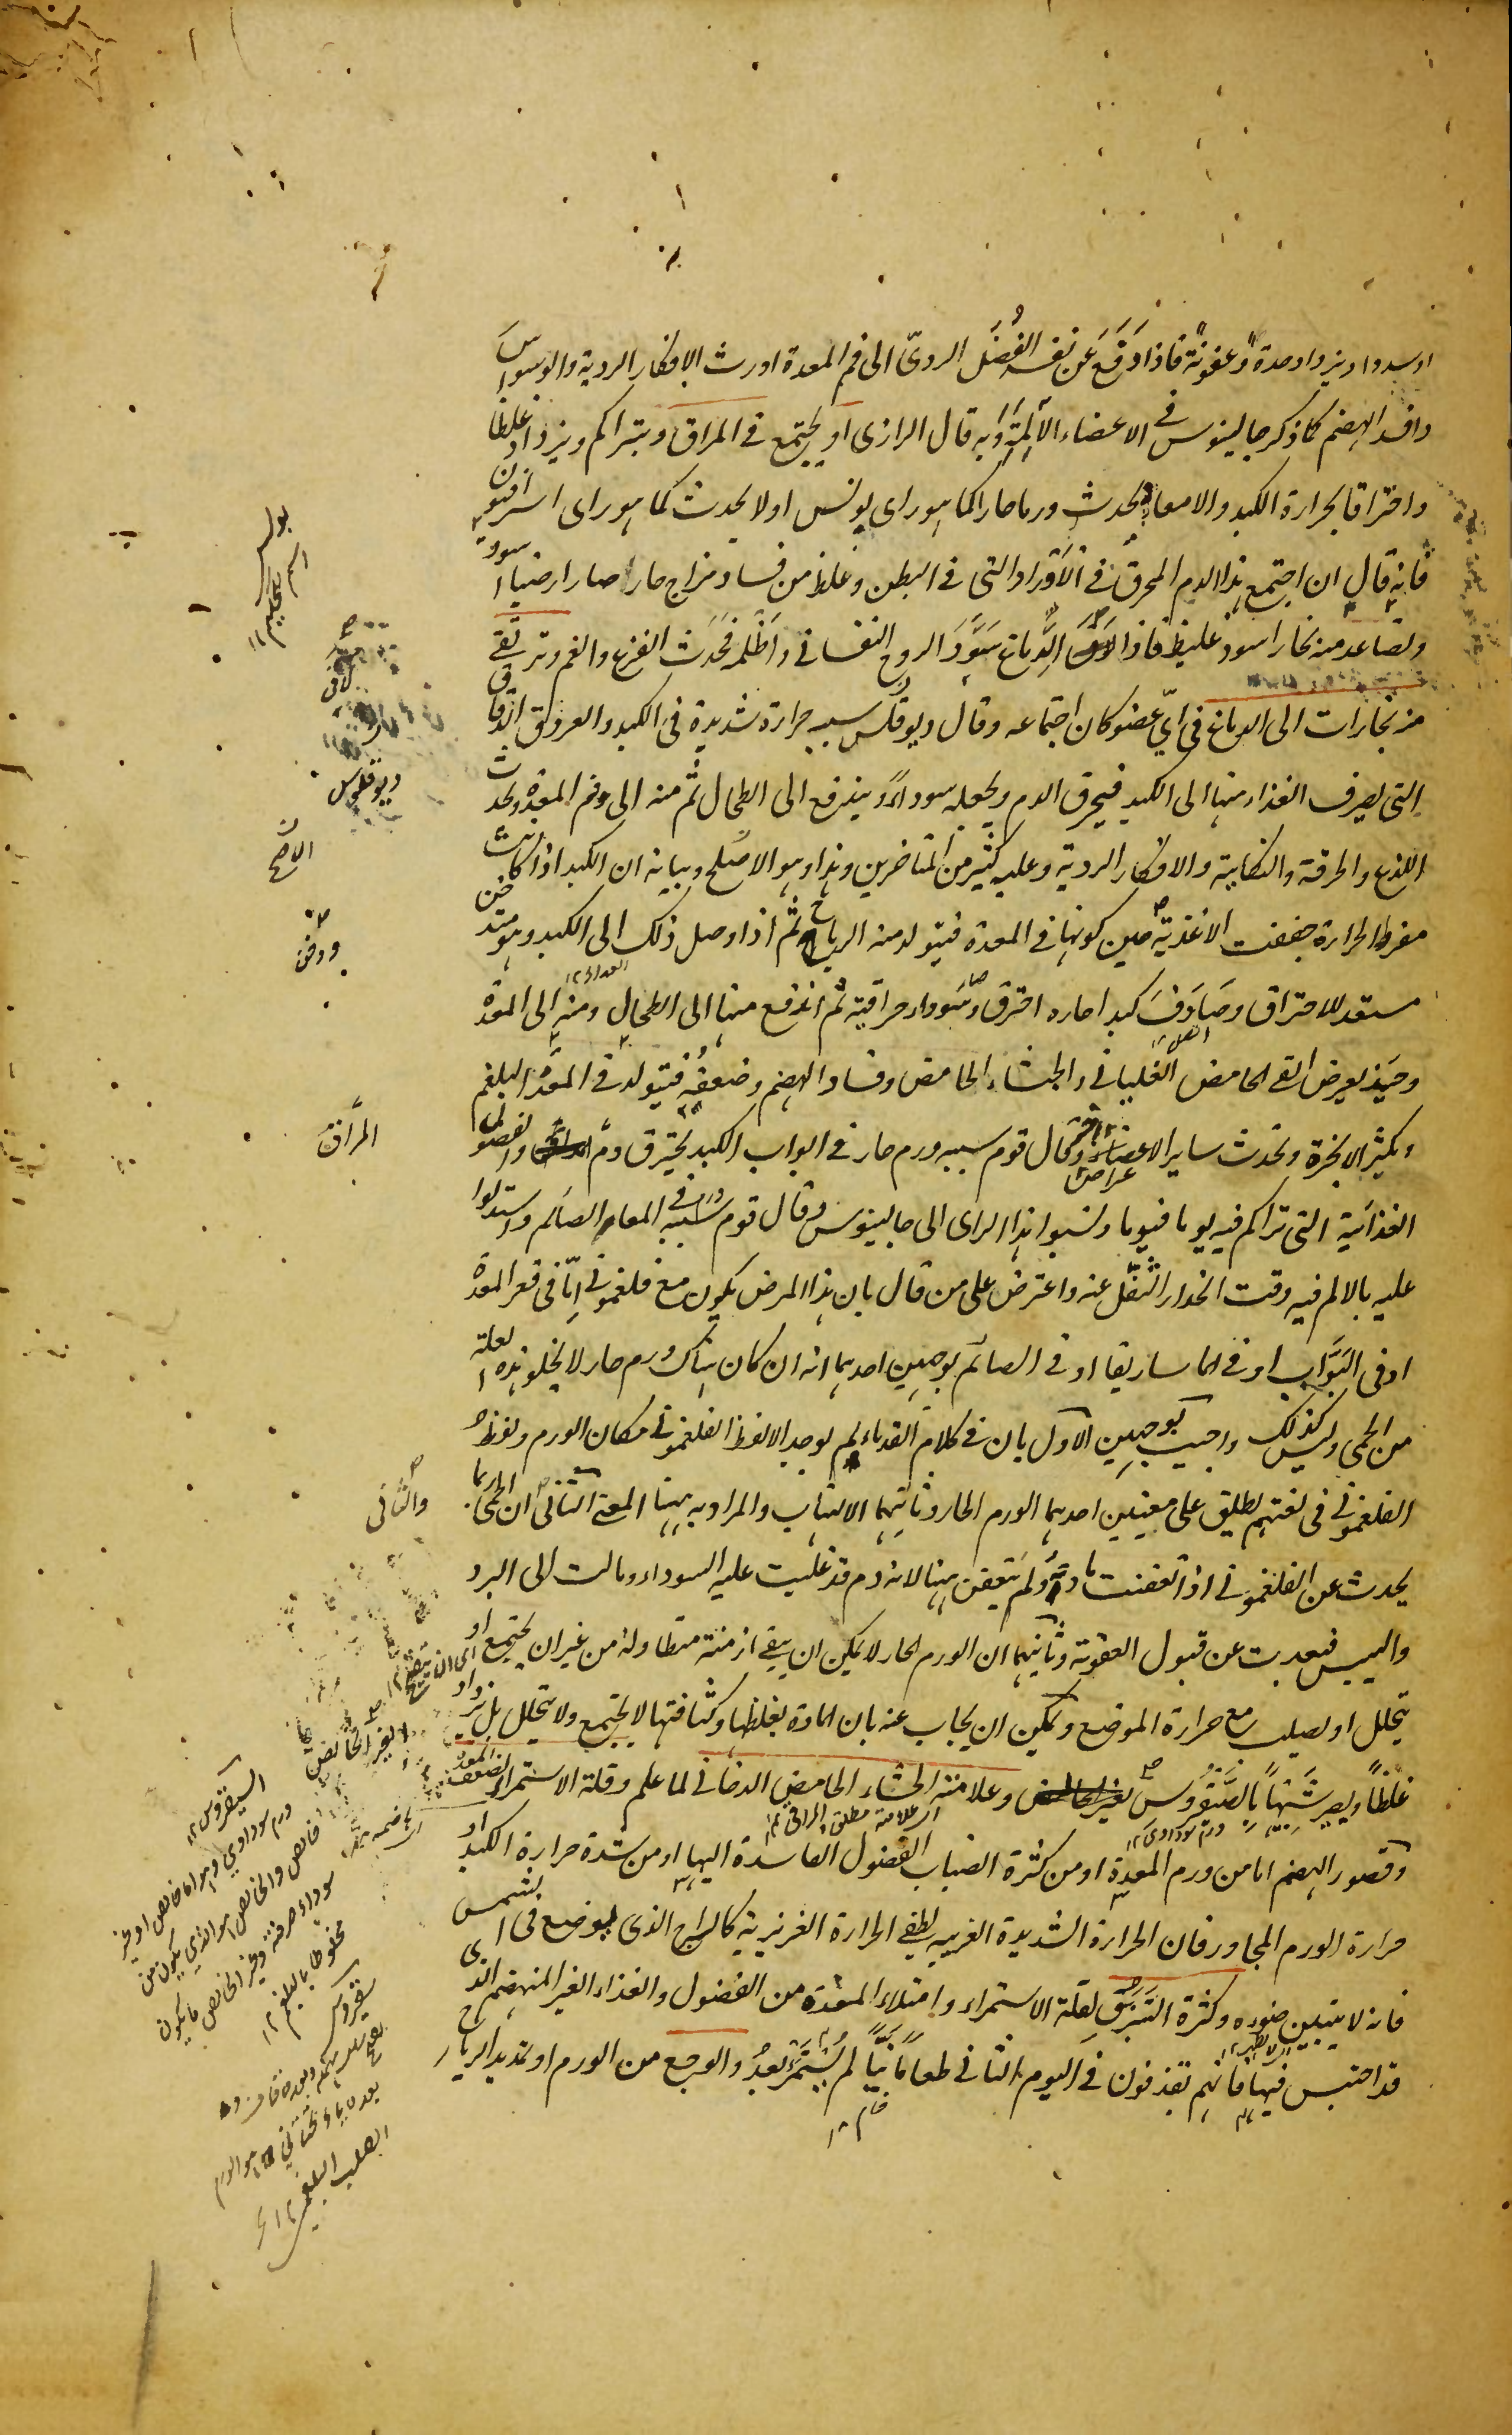 او سددا ويزداد حدة وعفونة فاذا دفع عن نفسه الفضل الردي الى فم المعدة اورث الافكار الردية والوسواس
وافسد الهضم كما ذكر جالينوس في الاعضاء الآلمة وبه قال الرازي او يجتمع في المراق ويتراكم ويزداد غلظا
واحتراقا بحرارة الكبد والامعاء يحدث ورما حارا كما هو راى بولس اولا يحدث كما هو راى اسرافيون
فانه قال ان اجتمع هذا الدم المحرق في الاوراد التي في البطن وغلظ من فساد مزاج حار صار ارضيا اسود
وتصاعد منه بخار اسود غليظ فاذا لاقى الدماغ سوّد الروح النفساني واظلمه فحدث الفزع والغم وترتقي
منه بخارات الى الدماغ في اي عضو كان اجتماعه وقال ديوقلس سببه حرارة شديدة في الكبد والعروق الدقاق
التي يصرف الغذاء منها الى الكبد فيحرق الدم ويجعله سوداء ويندفع الى الطحال ثم منه الى فم المعدة ويحدث
اللذع والحرقة والكابة والافكار الردية وعليه كثير من المتاخرين وهذا هو الاصلح وبيانه ان الكبد اذا كانت
مفرط الحرارة جففت الاغذية حين كونها في المعدة فيتولد منه الرياح ثم اذا وصل ذلك الى الكبد وهو متدخن
مستعد للاحتراق وصادف كبدا حاره احترق وسوداء حراقية ثم اندفع منها الى الطحال ومنه الى المعدة
وحينئذ يعرض القي الحامض الغلياني والجشاء الحامض وفساد الهضم وضعفه فيتولد في المعدة البلغم
ويكثر الابخرة وتحدث ساير الاعراض وقال قوم سببه ورم حار في ابواب الكبد يحترق دم المراق والفضول
الغذائية التي تراكم فيه يوما فيوما ونسبوا هذا الراى الى جالينوس وقال قوم سببه ورم في المعاء الصائم واستدلوا
عليه بالالم فيه وقت انحدار الثفل عنه واعترض على من قال بان هذا المرض يكون مع فلغموني اما في قعر المعدة
او في البواب او في الماساريقا او في الصائم بوجهين احدهما انه ان كان هناك ورم حار لا يخلو هذه العلة
من الحمى وليس كذلك واجيب بوجهين الاول بان في كلام القدماء لم يوجد الا لفظ الفلغموني مكان الورم ولفظ
الفلغموني في لغتهم يطلق على معنيين احدهما الورم الحار وثانيهما الالتهاب والمراد به ههنا المعنى الثاني ان الحمى انما
يحدث عن الفلغموني اذا تعفنت مادته ولم يتعفن ههنا لانه دم قد غلبت عليه السوداء ومالت الى البرد
واليبس فبعدت عن قبول العفونة وثانيهما ان الورم الحار لا يمكن ان يبقى ازمنة متطاولة من غير ان يجتمع او
يتحلل او يصلب مع حرارة الموضع ويمكن ان يجاب عنه بان المادة لغلظها وكثافتها لا يجتمع ولا يتحلل بل يزداد
غلظا ويصير شبيها بالسقيروس وعلامته الجشاء الحامض الدخاني لما علم وقلة الاستمراء لضعف المعدة
وقصور الهضم اما من ورم المعدة او من كثرة انصباب الفضول الفاسدة اليها او من شدة حرارة الكبد او
حرارة الورم المجاور فان الحرارة الشديدة الغريبه يطفي الحرارة الغريزية كالسراج الذي يوضع في الشمس
فانه لا يتبين ضوءه وكثرة التبزق لقلة الاستمراء وامتلاء المعدة من الفضول والغذاء الغير المنهضم الذي
قد احتبس فيها فانهم يقذفون في اليوم الثاني طعاما نيا لم يستمر بعد والوجع من الورم او تمديد الرياح
خام ١٢
بولس
اسم حكيم ١٢
لاقى
ديوقلوس
الاصح
المراق
والثاني
السقيروس ١٢
ورم سوداوي وهو اما خالص او غير
خالص والخالص هو الذي يكون من
سوداء صرفة وغير الخالص ما يكون
مخلوطا بالبلغم ١٢
سقيروس